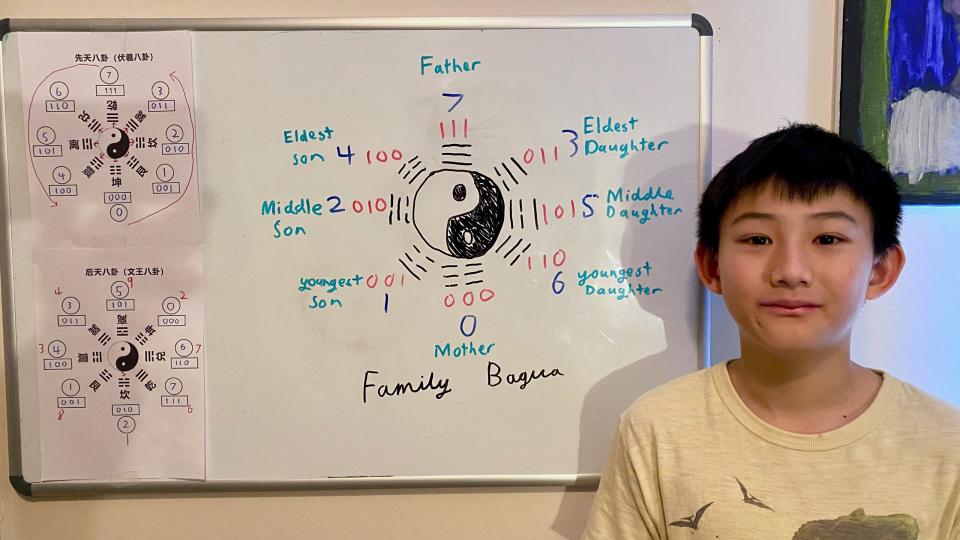 先天八卦（伏羲八卦）
7
111
乾
6
110
3
011
5
101
离
坎
2
010
4
100
1
001
坤
000
0
后天八卦（文王八卦）
9
5
101
离
4
3
011
2
0
000
3
4
100
6
110
7
1
001
8
7
111
6
坎
010
2
1
Father
7
111
Eldest
son 4 100
011 3 Eldest
Daughter
Middle 2 010
Son
101 5 Middle
Daughter
youngest 001
Son 1
110
6 youngest
Daughter
000
0
Mother
Family Bagua